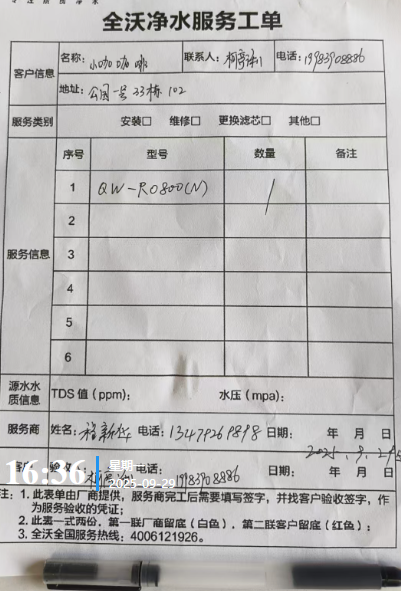 全沃净水服务工单
客户信息 名称: 小咖咖啡 联系人: 电话: 19983908886
地址: 公园一号 33栋 102
服务类别 安装□ 维修□ 更换滤芯□ 其他□
服务信息 序号 型号 数量 备注
1 QW-RO800(N) 1
2
3
4
5
6
源水水质信息 TDS 值 (ppm): 水压 (mpa):
服务商 姓名: 程新华 电话: 13479269898 日期: 年 月 日
2025.9.29
验收 电话: 19983908886 日期: 年 月 日
16:36 星期一
2025-09-29
注: 1. 此表单由厂商提供，服务商完工后需要填写签字，并找客户验收签字，作
为服务验收的凭证;
2. 此表一式两份，第一联厂商留底 (白色)，第二联客户留底 (红色);
3. 全沃全国服务热线: 4006121926。